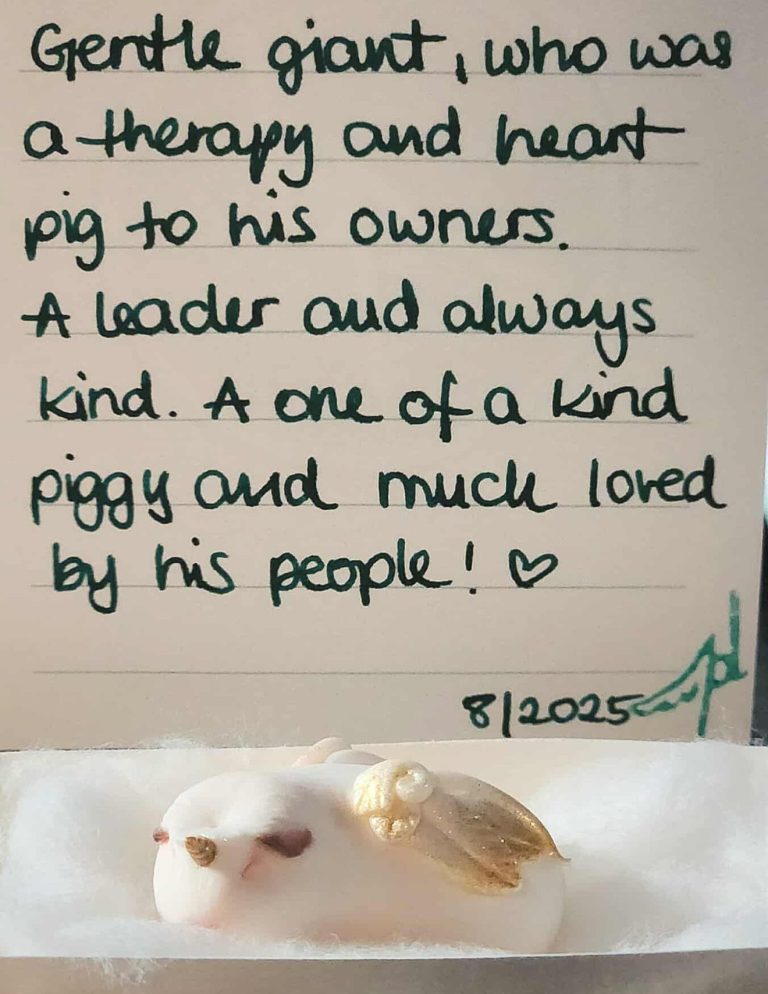 Gentle giant, who was
a therapy and heart
pig to his owners.
A leader and always
kind. A one of a kind
piggy and much loved
by his people! ♡
8/2025